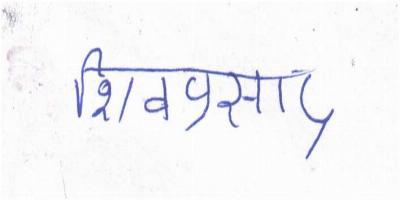 शिवप्रसाद